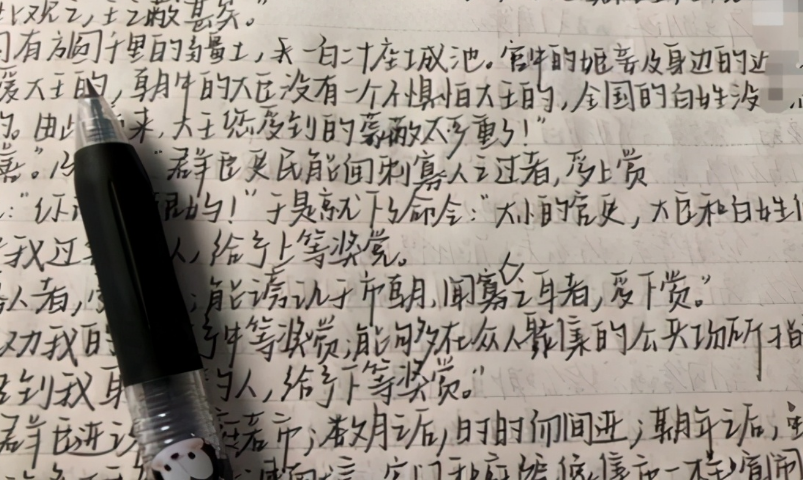 此观之,王之蔽甚矣。”
有方圆千里的疆土,一百二十座城池。宫中的姬妾及身边的近
爱大王的,朝中的大臣没有一个不惧怕大王的,全国的百姓没
的。由此 来,大王您受到的蒙蔽太严重了!”
善。” “群臣吏民能面刺寡人之过者,受上赏
:“你 的!”于是就下了命令:“大小的官吏,大臣和百姓们
我过 人,给予上等奖赏。
人者, ;能谤讥于市朝,闻寡人之耳者,受下赏。”
劝我的 中等奖赏;能够在众人聚集的公共场所指
到我耳 的人,给予下等奖赏。”
群臣进 若市;数月之后,时时而间进;期年之后,